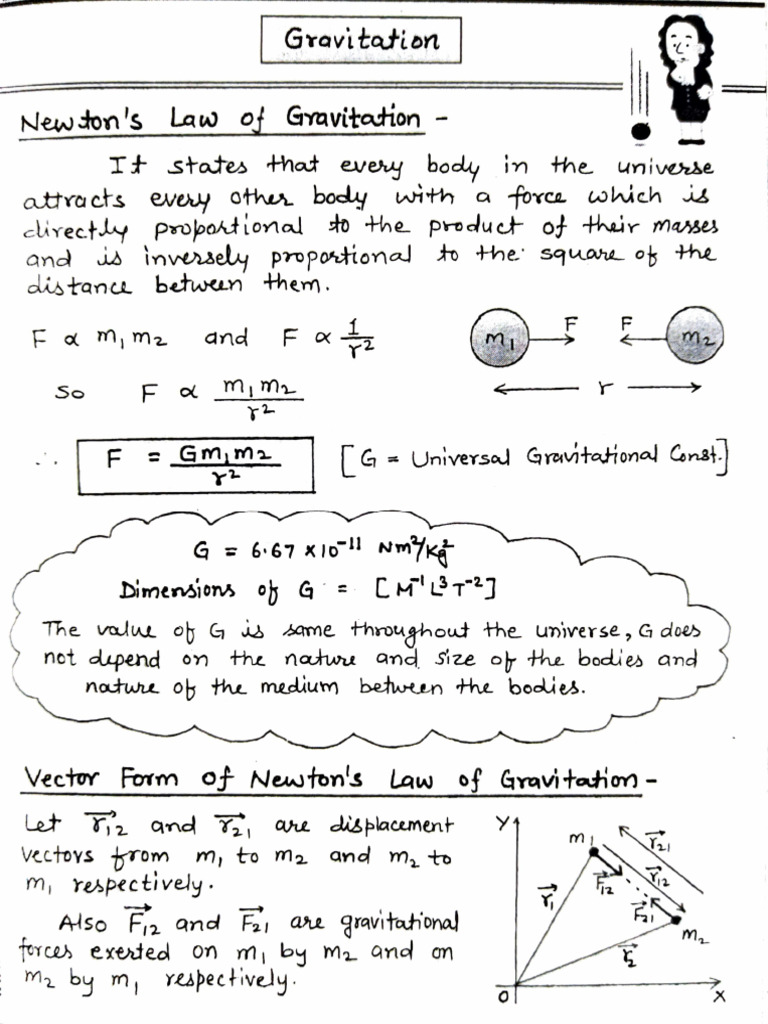 Gravitation
Newton's Law of Gravitation -
It states that every body in the universe
attracts every other body with a force which is
directly proportional to the product of their masses
and is inversely proportional to the square of the
distance between them.
F ∝ m₁m₂ and F ∝ 1/r²
F F
m₁ m₂
r
so F ∝ m₁m₂/r²
∴ F = Gm₁m₂/r² [G = Universal Gravitational Const.]
G = 6.67 × 10⁻¹¹ Nm²/Kg²
Dimensions of G = [M⁻¹L³T⁻²]
The value of G is same throughout the universe, G does
not depend on the nature and size of the bodies and
nature of the medium between the bodies.
Vector Form of Newton's Law of Gravitation -
Let r⃗₁₂ and r⃗₂₁ are displacement
vectors from m₁ to m₂ and m₂ to
m₁ respectively.
Also F⃗₁₂ and F⃗₂₁ are gravitational
forces exerted on m₁ by m₂ and on
m₂ by m₁ respectively.
Y
m₁
r⃗₂₁
r⃗₁₂
F⃗₁₂
r⃗₁
F⃗₂₁
m₂
r⃗₂
O
X